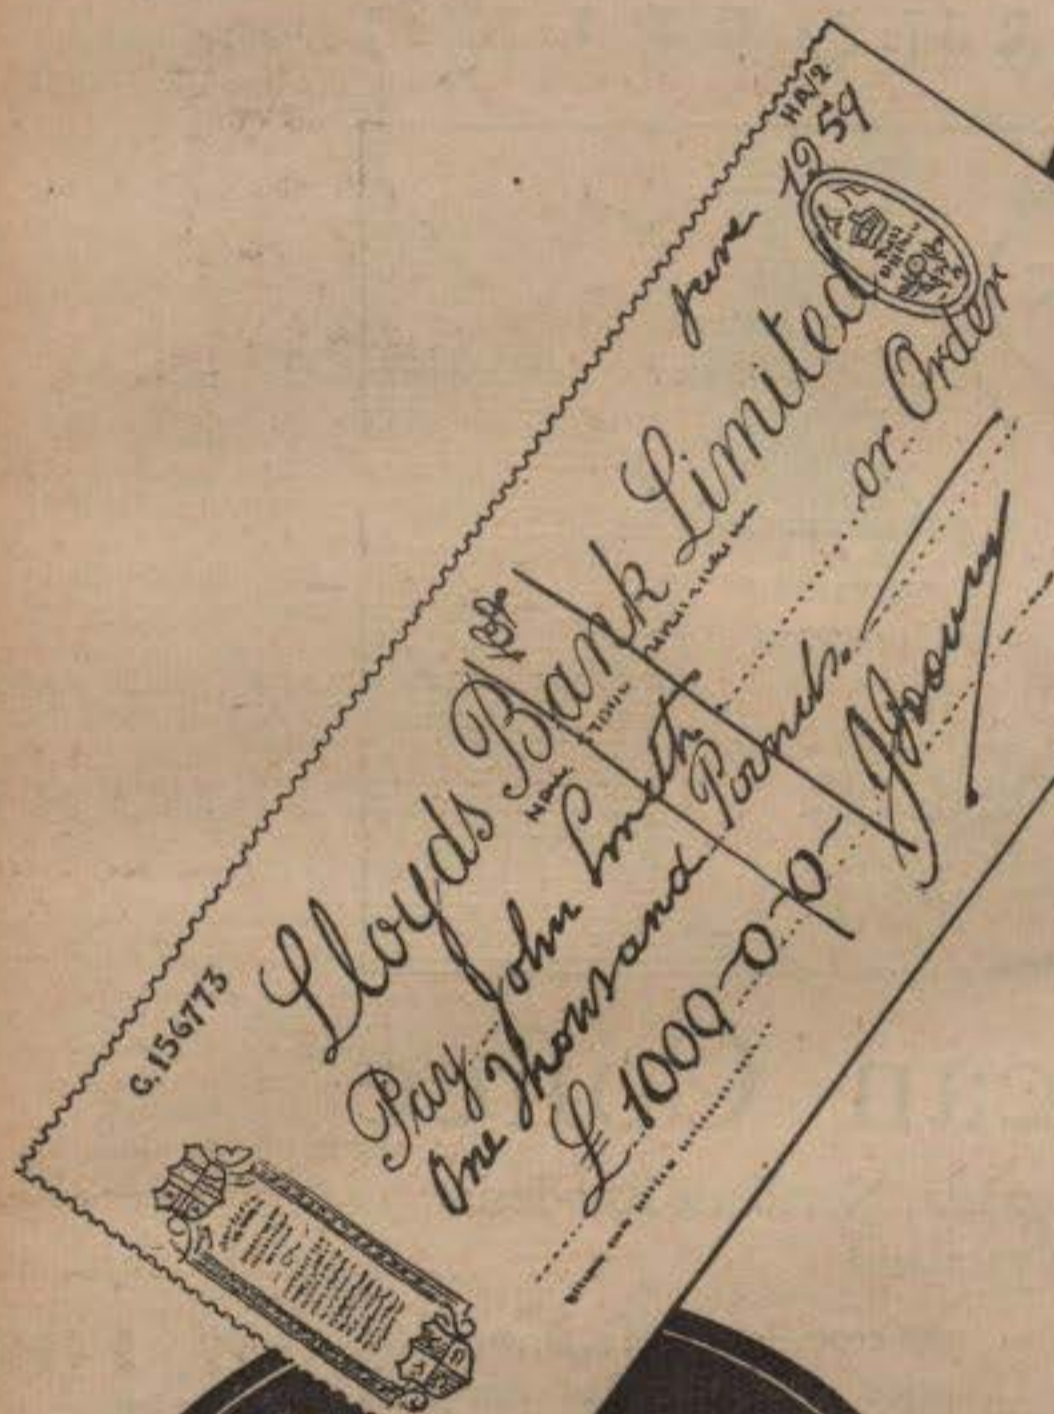 HA/2
G.156773
June 1959
Lloyds Bank Limited
Pay John Smith or Order
One Thousand Pounds.
£ 1000-0-0-